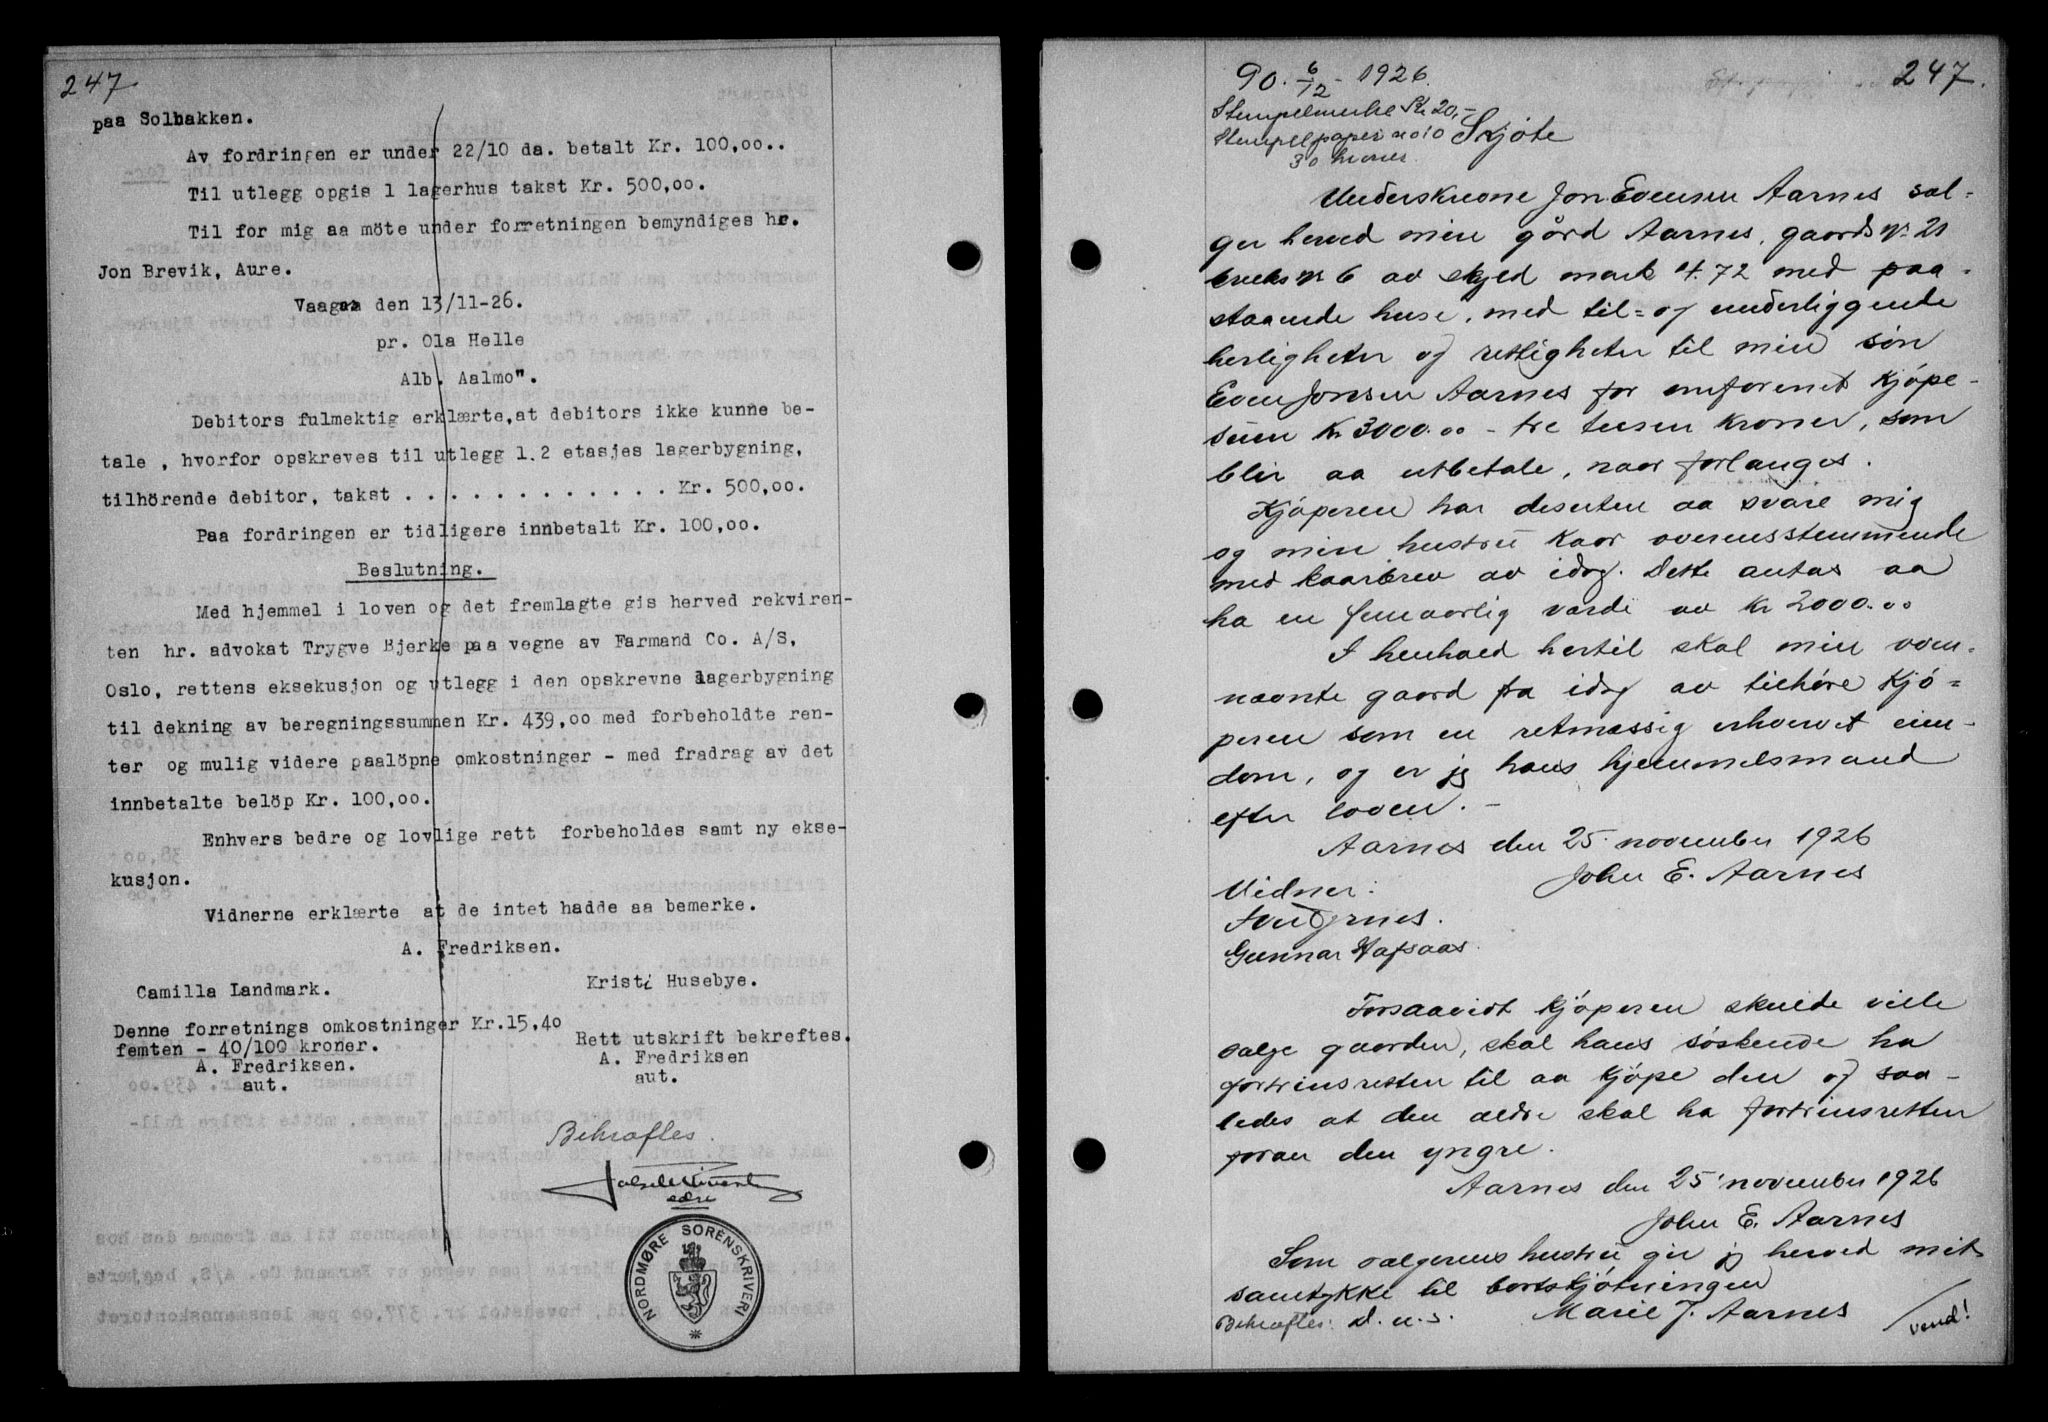 247
paa Solbakken.
Av fordringen er under 22/10 da. betalt Kr. 100,oo..
Til utlegg opgis 1 lagerhus takst Kr. 500,oo.
Til for mig aa möte under forretningen bemyndiges hr.
Jon Brevik, Aure.
Vaagaa den 13/11-26.
pr. Ola Helle
Alb. Aalmo".
Debitors fulmektig erklærte,at debitors ikke kunne be-
tale , hvorfor opskreves til utlegg 1.2 etasjes lagerbygning,
tilhörende debitor, takst . . . . . . . . . . . . Kr. 500,oo.
Paa fordringen er tidligere innbetalt Kr. 100,oo.
Beslutning.
Med hjemmel i loven og det fremlagte gis herved rekviren-
ten hr. advokat Trygve Bjerke paa vegne av Farmand Co. A/S,
Oslo, rettens eksekusjon og utlegg i den opskrevne lagerbygning
til dekning av beregningssummen Kr. 439,oo med forbeholdte ren-
ter og mulig videre paalöpne omkostninger - med fradrag av det
innbetalte belöp Kr. 100,oo.
Enhvers bedre og lovlige rett forbeholdes samt ny ekse-
kusjon.
Vidnerne erklærte at de intet hadde aa bemerke.
A. Fredriksen.
Camilla Landmark.
Kristi Husebye.
Denne forretnings omkostninger Kr.15,40
femten - 40/100 kroner.
A. Fredriksen.
aut.
Rett utskrift bekreftes.
A. Fredriksen
aut.
Bekræftes.
NORDMØRE SORENSKRIVERI
247.
90. 6/12 - 1926.
Stempelmerke Kr 20,-
Stempelpapir no 10
30 kroner.
Skjöte
Underskrevne Jon Evensen Aarnes sæl-
ger herved min gård Aarnes, gaards nr 21
bruks nr 6 av skyld mark 4.72 med paa-
staaende huse, med til- og underliggende
herligheter og rettigheter til min søn
Even Jonsen Aarnes for omforenet kjøpe-
sum Kr 3000.oo - tre tusen kroner, som
blir aa utbetale, naar forlanges.
Kjøperen har desuten aa svare mig
og min hustru kaar overensstemmende
med kaarbrev av idag. Dette antas aa
ha en femaarlig værdi av Kr 2000.oo
I henhold hertil skal min oven-
nævnte gaard fra idag av tilhøre kjø-
peren som en retmæssig erhvervet eien-
dom, og er jeg hans hjemmelsmand
efter loven. -
Aarnes den 25. november 1926
John E. Aarnes
Vidner:
Gunnar Hafsaas.
Forsaavidt kjøperen skulde ville
sælge gaarden, skal hans søskende ha
fortrinsretten til aa kjøpe den og saa-
ledes at den ældre skal ha fortrinsretten
foran den yngre.
Aarnes den 25 november 1926
John E. Aarnes
Som sælgerens hustru gir jeg herved mit
samtykke til bortskjøtningen
Bekræftes: d. u. s.
Marie J. Aarnes
vend!